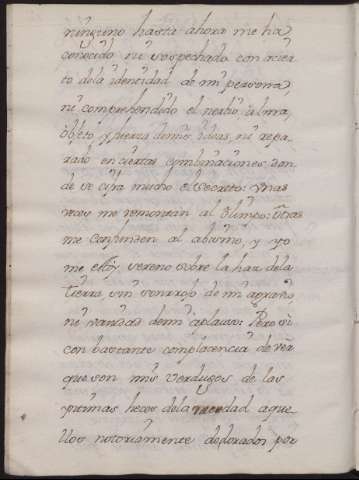 ninguno hasta ahora me ha
conocido ni sospechado con acier-
to dela identidad de mi persona,
ni comprehendido el nerbio, alma,
objeto y fuerza demis ideas, ni repa-
rado en ciertas combinaciones don-
de se cifra mucho el Secreto: Unas
veces me remontan al Olimpo: Otras
me confunden al abismo, y yo
me estoy sereno sobre la haz dela
tierra, sin sonrojo de mi agravio,
ni vanidad demi aplauso: Pero si
con bastante complacencia de ver
que son mis verdugos de las
plumas hecos dela verdad aque-
llos notoriamente dedorados por